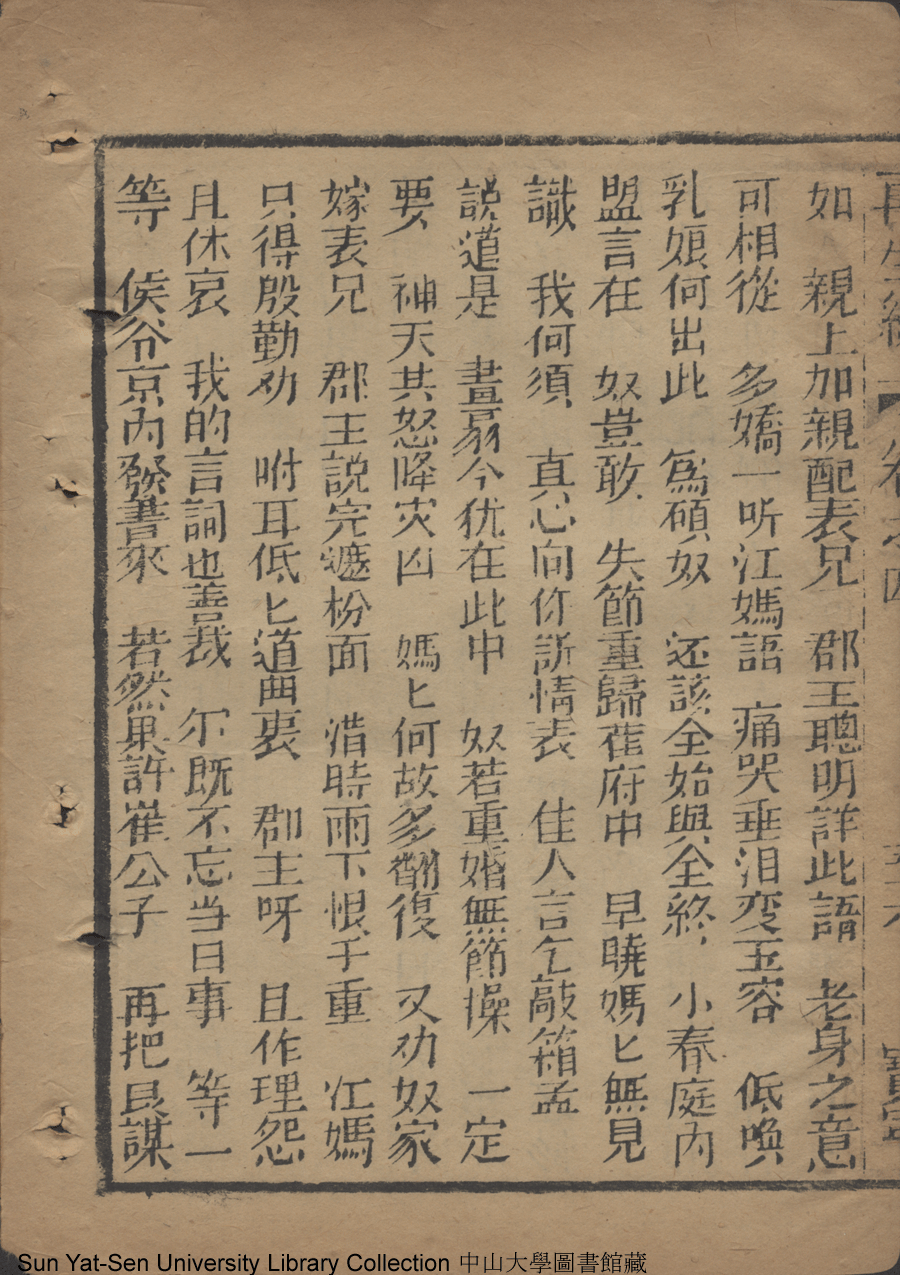 再生緣
卷之四
如 親上加親配表兄 郡主聰明詳此語 老身之意
可相從 多嬌一听江媽語 痛哭垂泪变玉容 低喚
乳娘何出此 爲碩奴 还該全始與全終 小春庭內
盟言在 奴豈敢 失節重歸崔府中 早曉媽匕無見
識 我何須 真心向你訴情衷 佳人言乞敲箱孟
說道是 畫扇今犹在此中 奴若重婚無節操 一定
要 神天其怒降灾凶 媽匕何故多翻復 又劝奴家
嫁表兄 郡主說完遮枌面 湝時雨下恨千重 江媽
只得殷勤劝 咐耳低匕道曲衷 郡主呀 且作理怨
且休哀 我的言詞也善裁 尔既不忘当日事 等一
等 侯爷京內發書來 若然果許崔公子 再把良謀
Sun Yat-Sen University Library Collection 中山大學圖書館藏